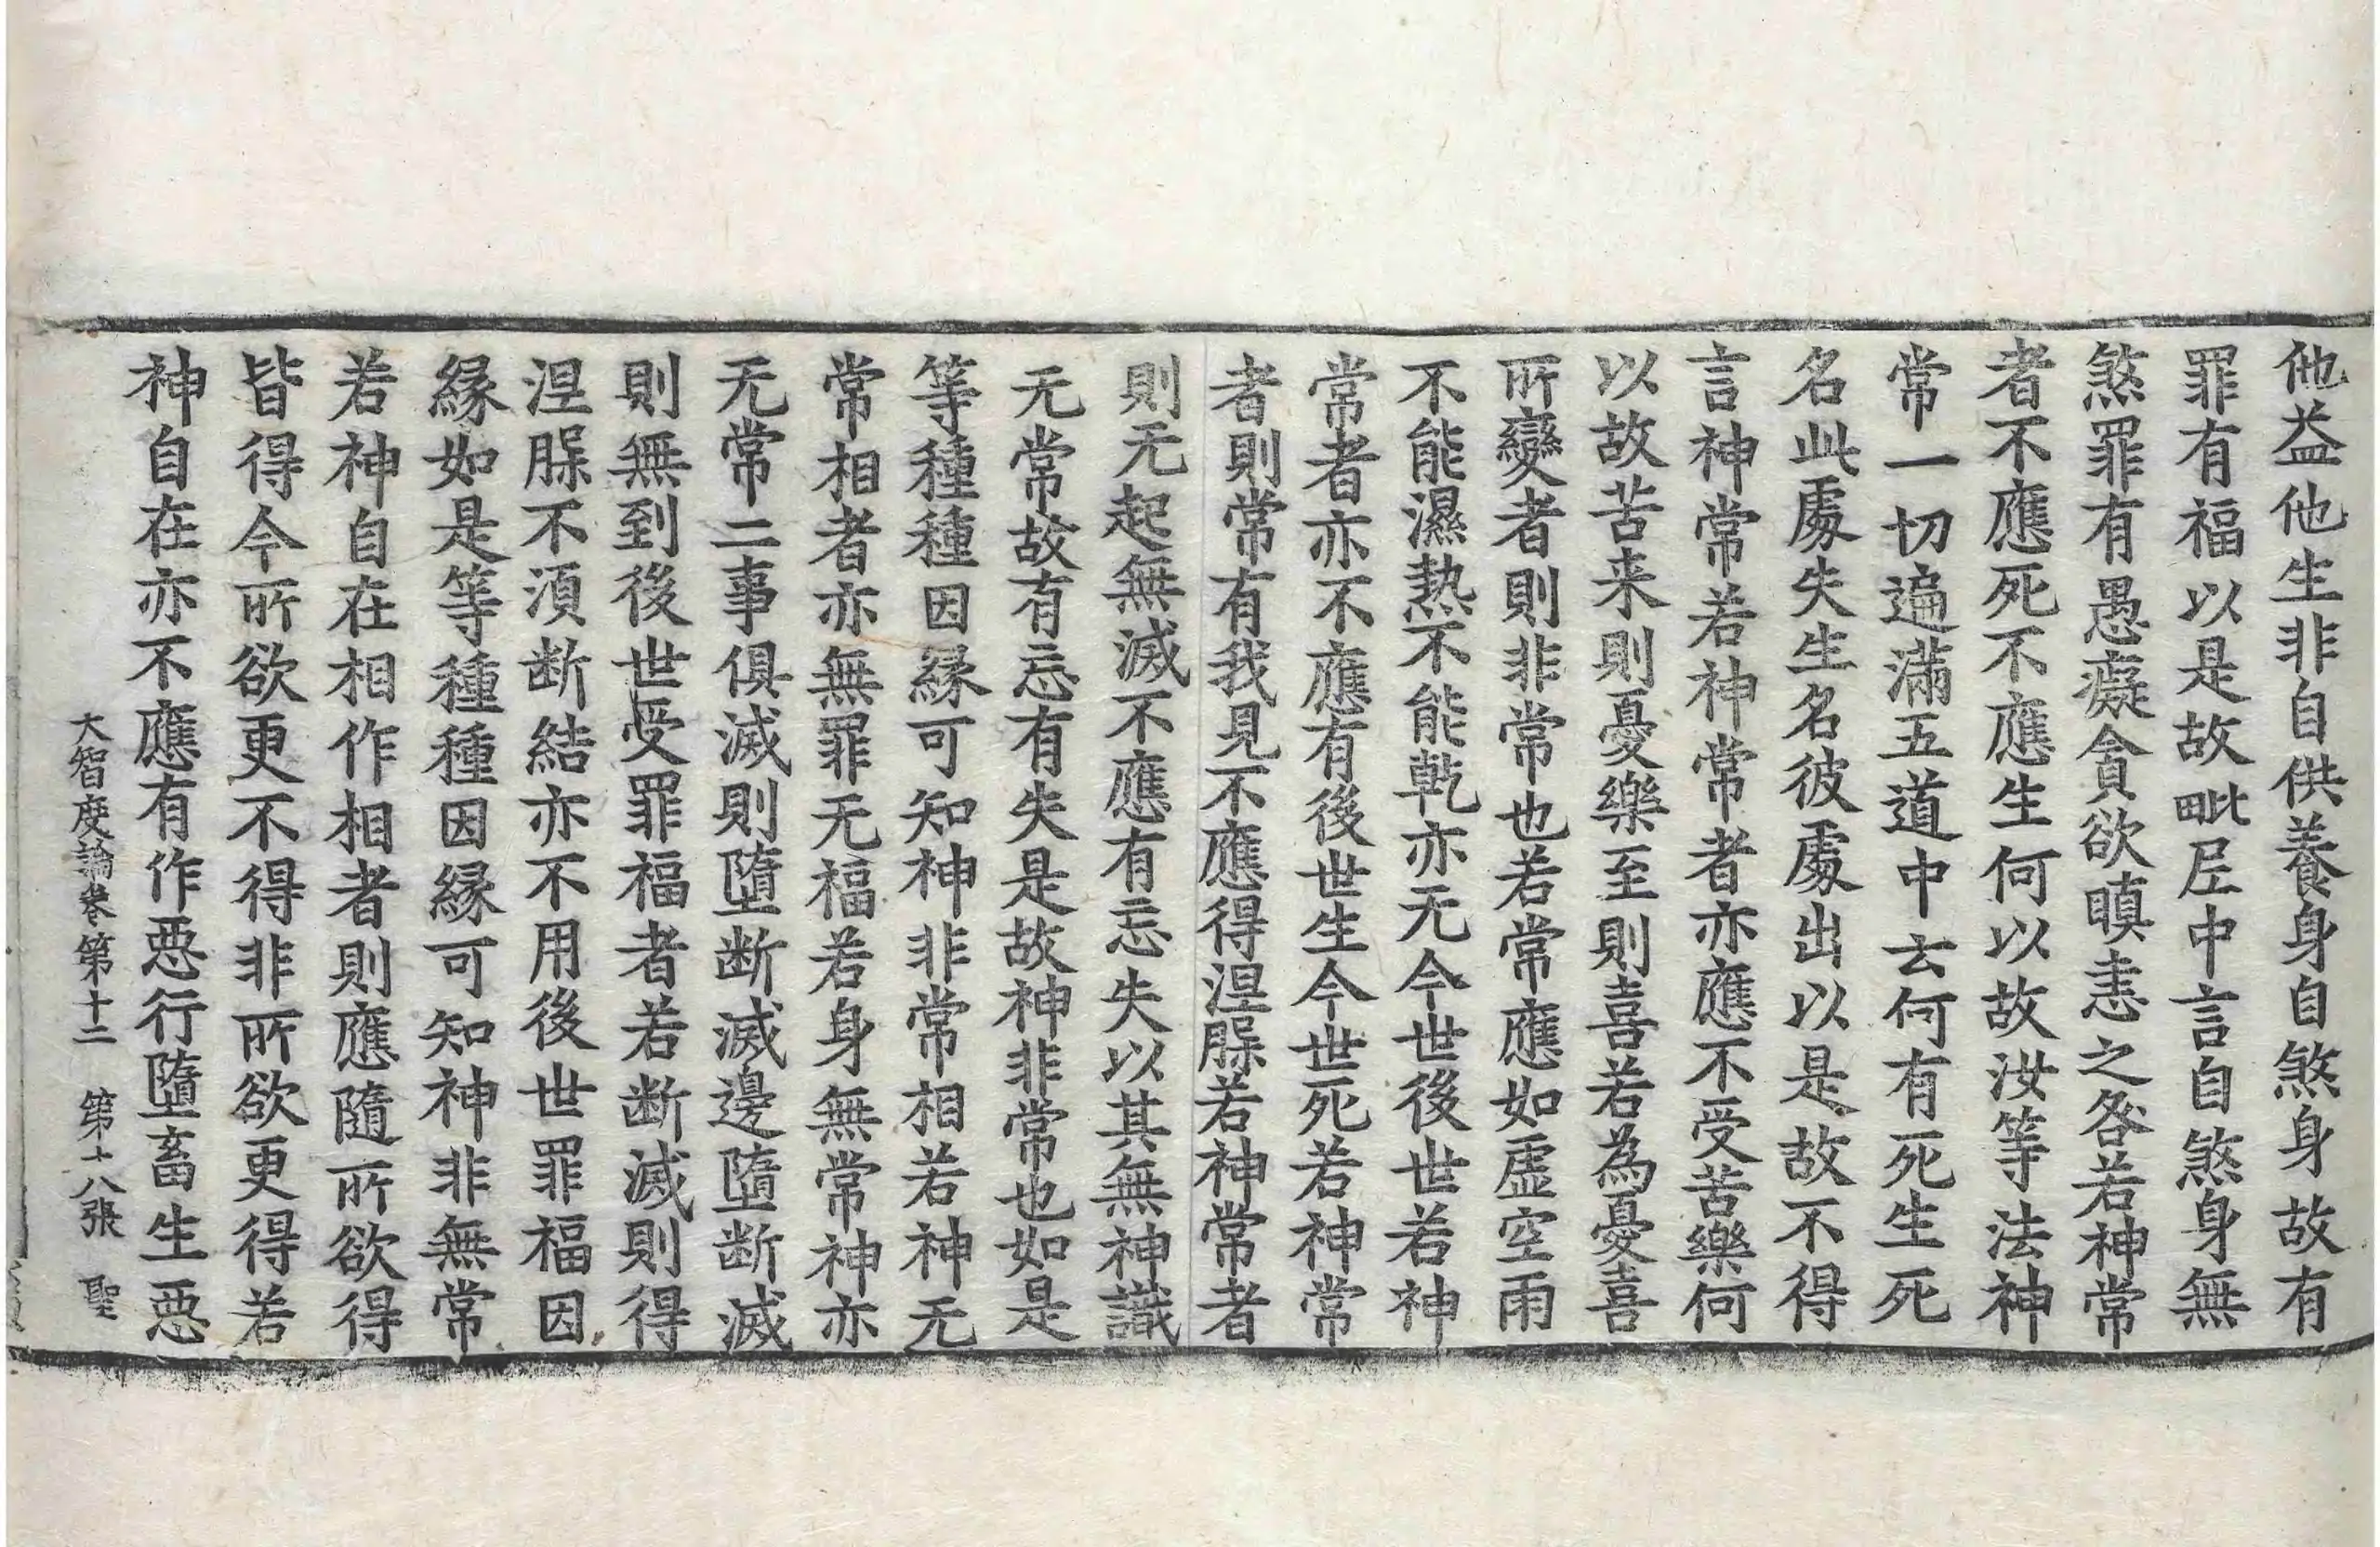 他益他生非自供養身自煞身故有
罪有福以是故毗𡰱中言自煞身無
煞罪有愚癡貪欲瞋恚之咎若神常
者不應死不應生何以故汝等法神
常一切遍滿五道中云何有死生死
名此處失生名彼處出以是故不得
言神常若神常者亦應不受苦樂何
以故苦来則憂樂至則喜若為憂喜
所變者則非常也若常應如虛空雨
不能濕熱不能乾亦无今世後世若神
常者亦不應有後世生今世死若神常
者則常有我見不應得涅㲉若神常者
則无起無滅不應有忘失以其無神識
无常故有忘有失是故神非常也如是
等種種因緣可知神非常相若神无
常相者亦無罪无福若身無常神亦
无常二事俱滅則墮断滅邊墮断滅
則無到後世受罪福者若断滅則得
涅㲉不湏断結亦不用後世罪福因
緣如是等種種因緣可知神非無常
若神自在相作相者則應隨所欲得
皆得今所欲更不得非所欲更得若
神自在亦不應有作惡行墮畜生惡
大智度論卷第十二 第十八張 聖